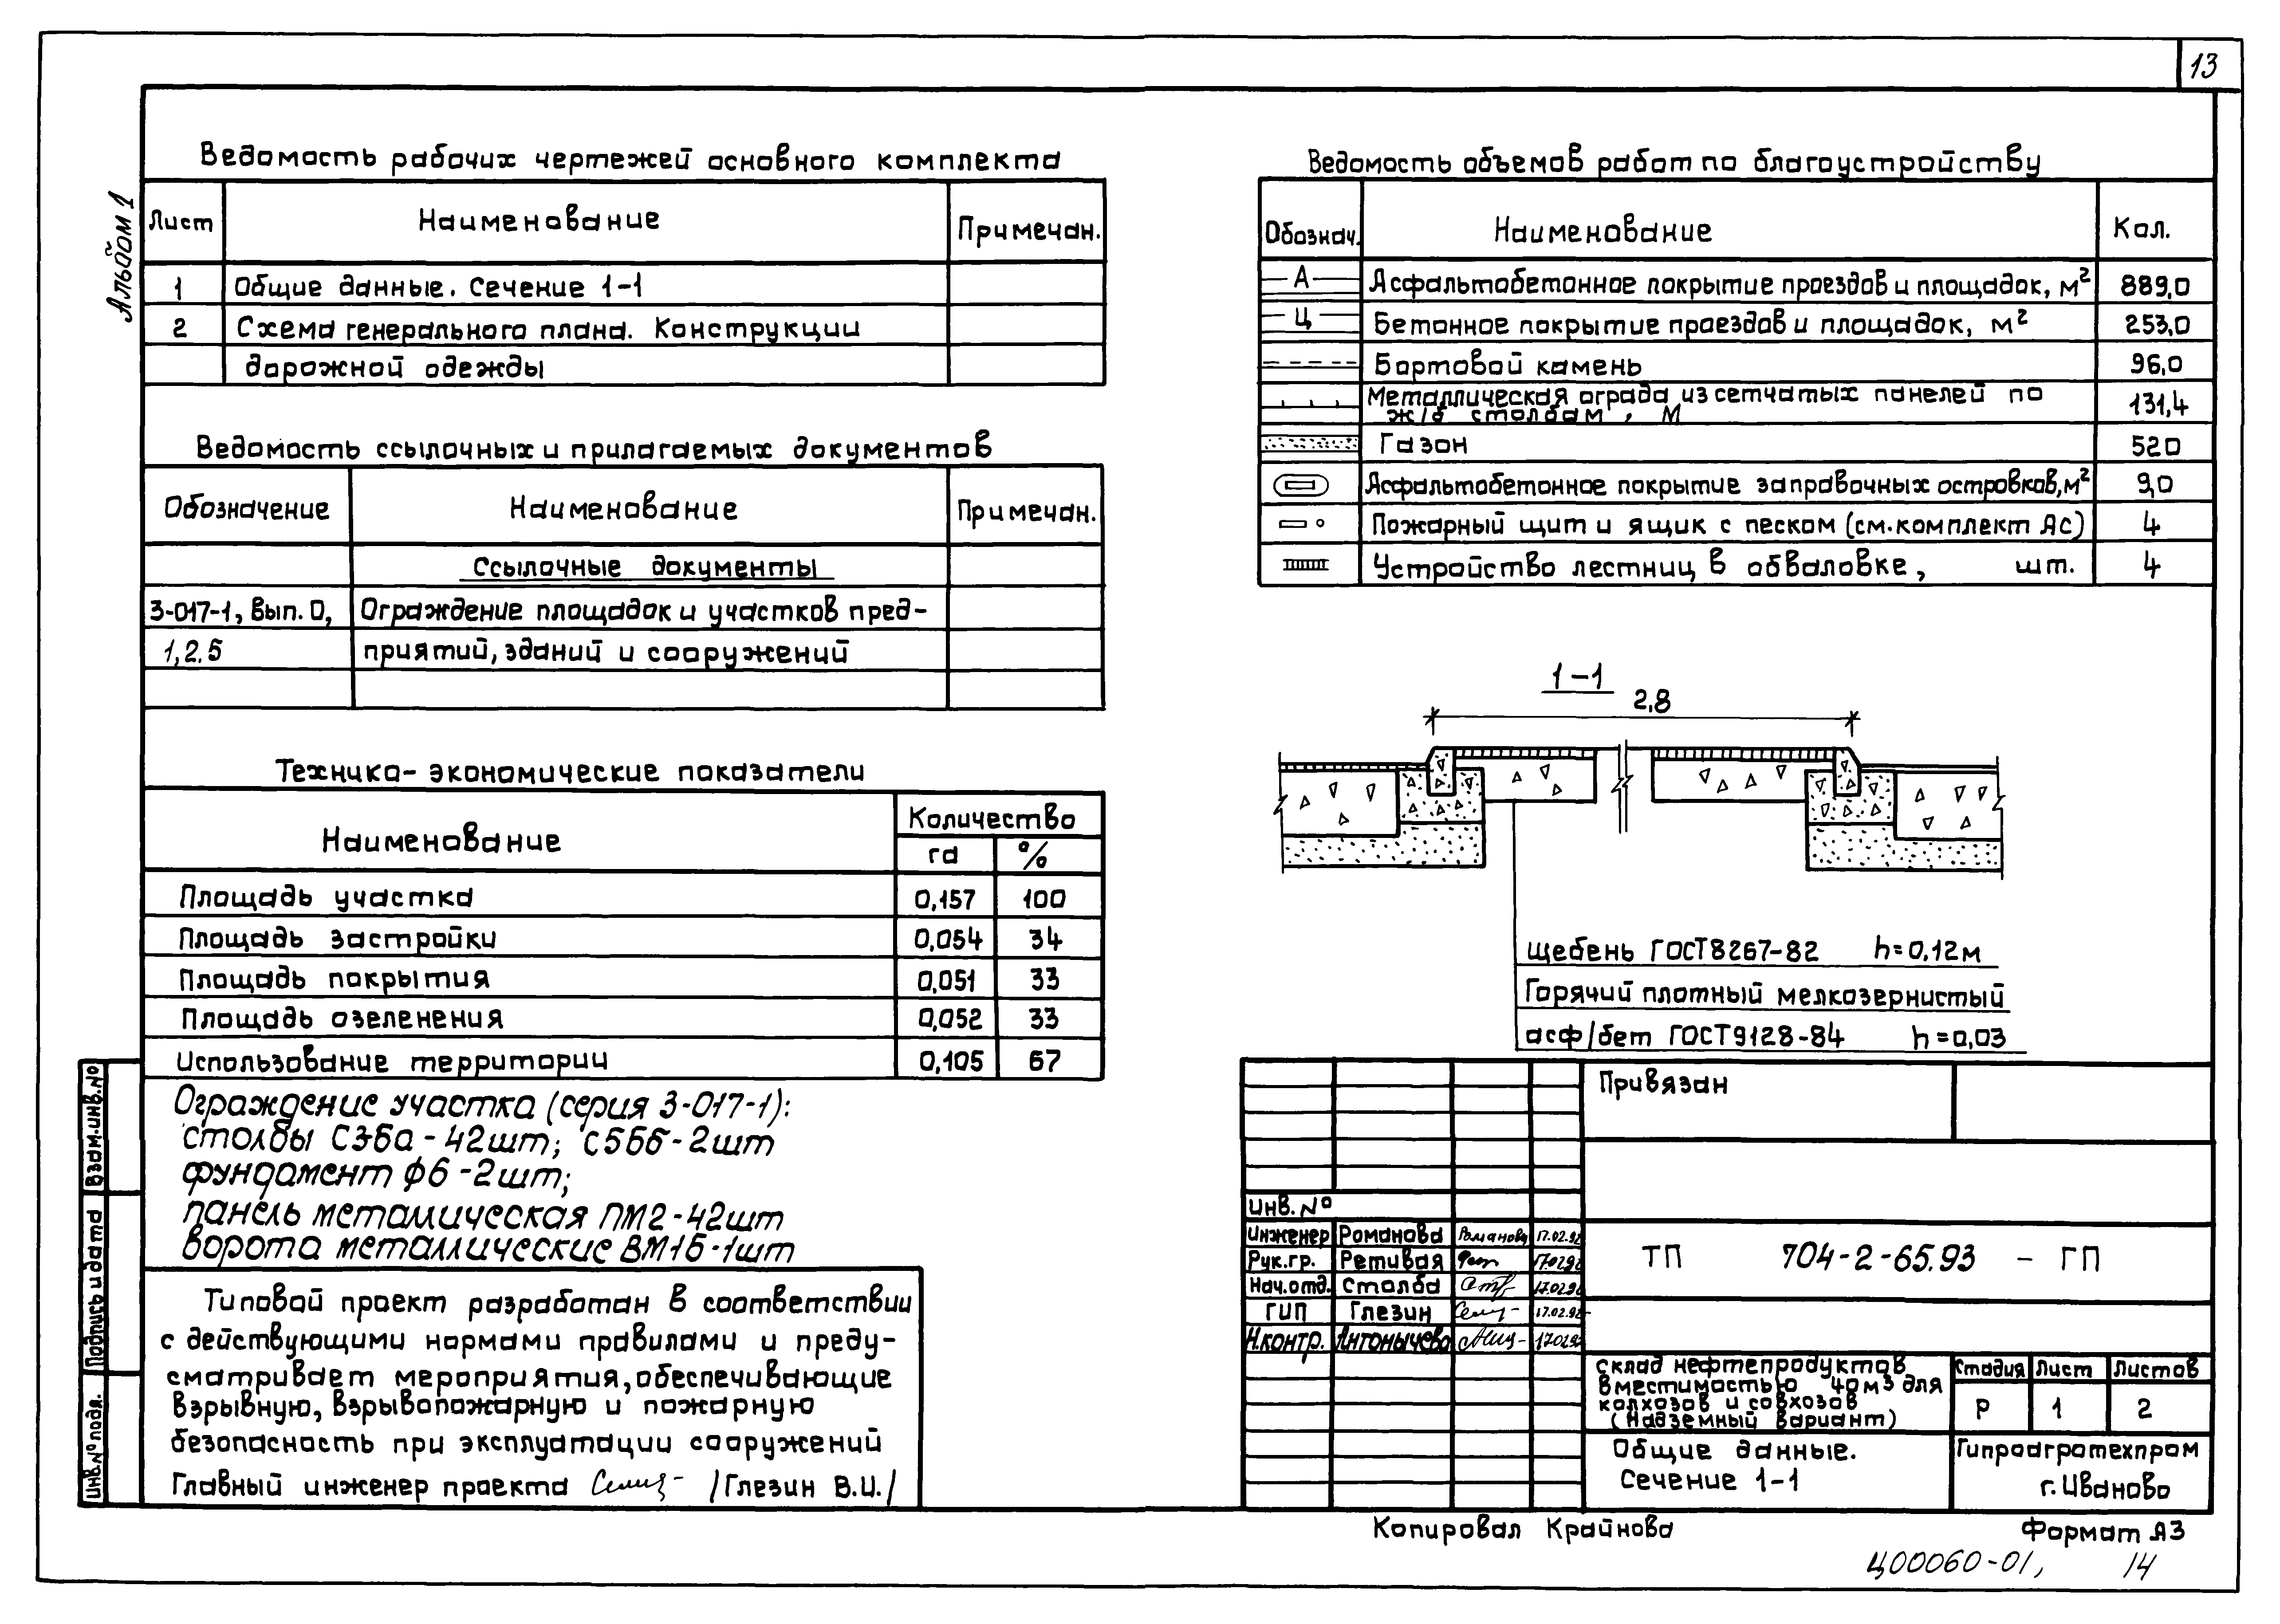 13
Альбом 1
Ведомость рабочих чертежей основного комплекта
Лист Наименование Примечан.
1 Общие данные. Сечение 1-1
2 Схема генерального плана. Конструкции
дорожной одежды
Ведомость ссылочных и прилагаемых документов
Обозначение Наименование Примечан.
Ссылочные документы
3-017-1, Вып. 0, Ограждение площадок и участков пред-
1,2.5 приятий, зданий и сооружений
Технико-экономические показатели
Наименование Количество
га %
Площадь участка 0,157 100
Площадь застройки 0,054 34
Площадь покрытия 0,051 33
Площадь озеленения 0,052 33
Использование территории 0,105 67
Ограждение участка (серия 3-017-1):
столбы С3ба - 42шт; С5бб - 2шт
фундамент Ф6 - 2шт;
панель металлическая ПМ2 - 42шт
ворота металлические ВМ1Б - 1шт
Типовой проект разработан в соответствии
с действующими нормами правилами и преду-
сматривает мероприятия, обеспечивающие
взрывную, взрывопожарную и пожарную
безопасность при эксплуатации сооружений
Главный инженер проекта /Глезин В.И./
Взам.инв.№
Подпись и дата
Инв.№ подл.
Ведомость объемов работ по благоустройству
Обознач. Наименование Кол.
А Асфальтобетонное покрытие проездов и площадок, м² 889,0
Ц Бетонное покрытие проездов и площадок, м² 253,0
Бортовой камень 96,0
Металлическая ограда из сетчатых панелей по
ж/б столбам, м 131,4
Газон 520
Асфальтобетонное покрытие заправочных островков, м² 9,0
Пожарный щит и ящик с песком (см. комплект Ас) 4
Устройство лестниц в обваловке, шт. 4
1-1
2,8
щебень ГОСТ8267-82 h=0,12м
Горячий плотный мелкозернистый
асф/бет ГОСТ9128-84 h=0,03
Привязан
Инв.№
Инженер Романова Романова 17.02.92
Рук.гр. Ретивая 17.02.92
Нач.отд. Столба 17.02.92
ГИП Глезин 17.02.92
Н.контр. Антонычева 17.02.92
ТП 704-2-65.93 - ГП
Склад нефтепродуктов
вместимостью 40м³ для
колхозов и совхозов
(Надземный вариант)
Стадия Лист Листов
Р 1 2
Общие данные.
Сечение 1-1
Гипроагротехпром
г. Иваново
Копировал Крайнова
Формат А3
Ц00060-01, 14